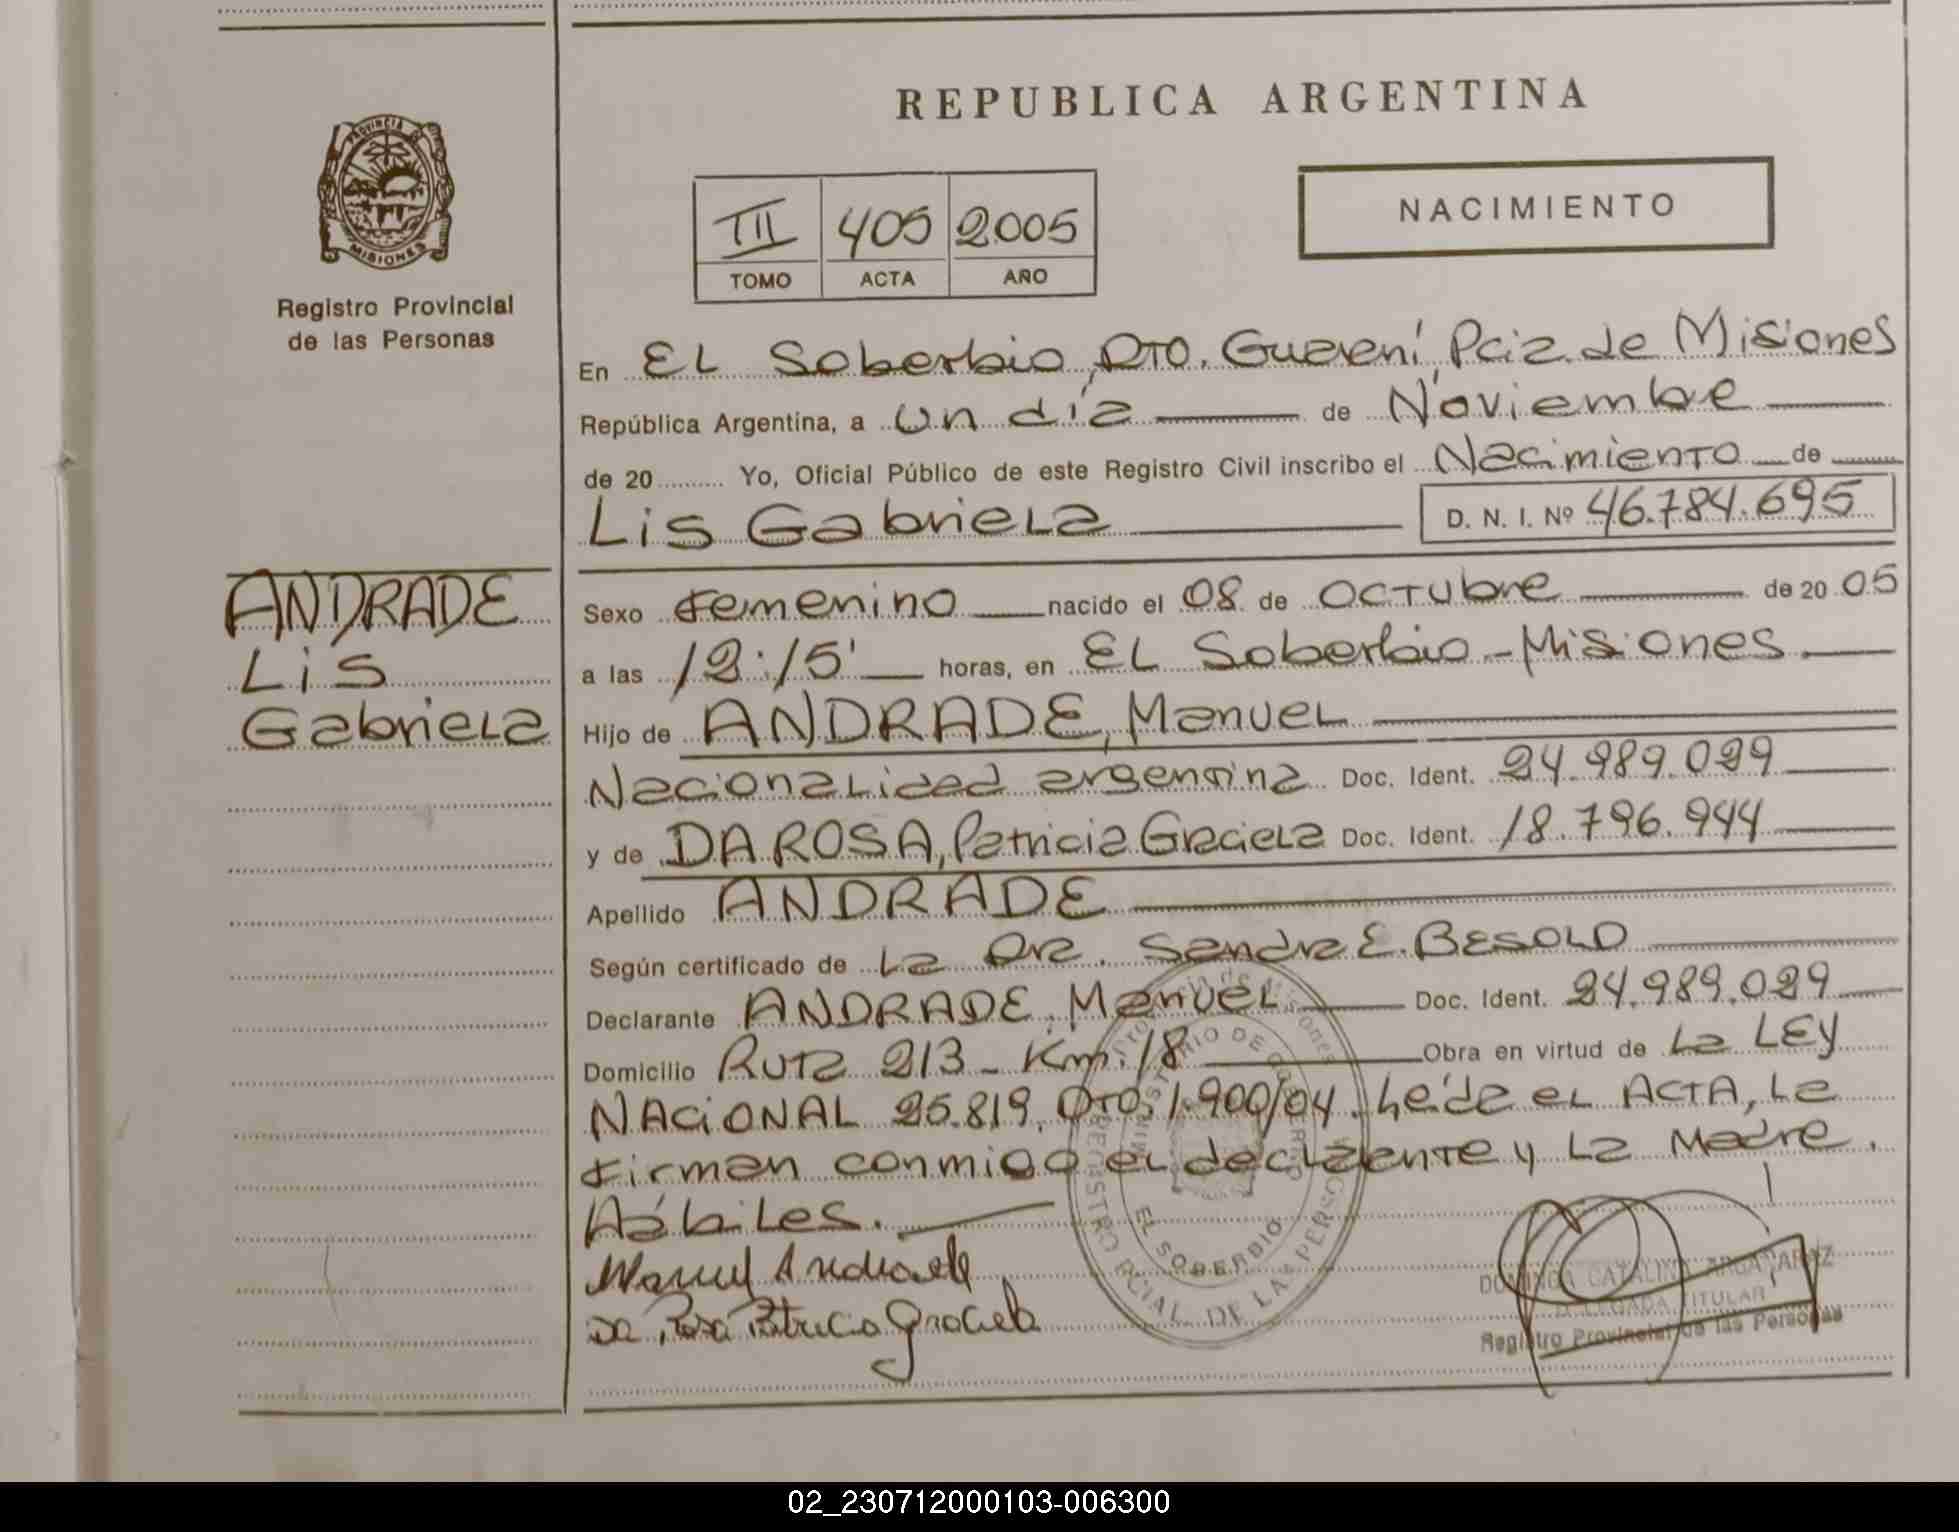 REPUBLICA ARGENTINA
PROVINCIA DE
MISIONES
Registro Provincial
de las Personas
III 405 2005
TOMO ACTA AÑO
NACIMIENTO
En EL Soberbio, DTO. Guaraní, Pcia. de Misiones
República Argentina, a un día de Noviembre
de 20 ......... Yo, Oficial Público de este Registro Civil inscribo el Nacimiento de
Lis Gabriela D. N. I. Nº 46.784.695
ANDRADE
Lis
Gabriela
Sexo femenino nacido el 08 de Octubre de 20 05
a las 12:15' horas, en EL Soberbio - Misiones.
Hijo de ANDRADE, Manuel
Nacionalidad argentina Doc. Ident. 24.989.029
y de DA ROSA, Patricia Graciela Doc. Ident. 18.796.944
Apellido ANDRADE
Según certificado de La Dra. Sandra E. BESOLD
Declarante ANDRADE, Manuel Doc. Ident. 24.989.029
Domicilio Ruta 213 - Km. 18 Obra en virtud de La LEY
NACIONAL 25.819, DTO. 1.900/04. Leída el ACTA, La
firman conmigo el declarente y La Madre.
Hábiles.
Manuel Andrade
Da Rosa Patricia Graciela
Provincia de Misiones
MINISTERIO DE GOBIERNO
REGISTRO PCIAL. DE LAS PERSONAS
EL SOBERBIO
DOMINGA CATALINA ARGAÑARAZ
DELEGADA TITULAR
Registro Provincial de las Personas
02_230712000103-006300